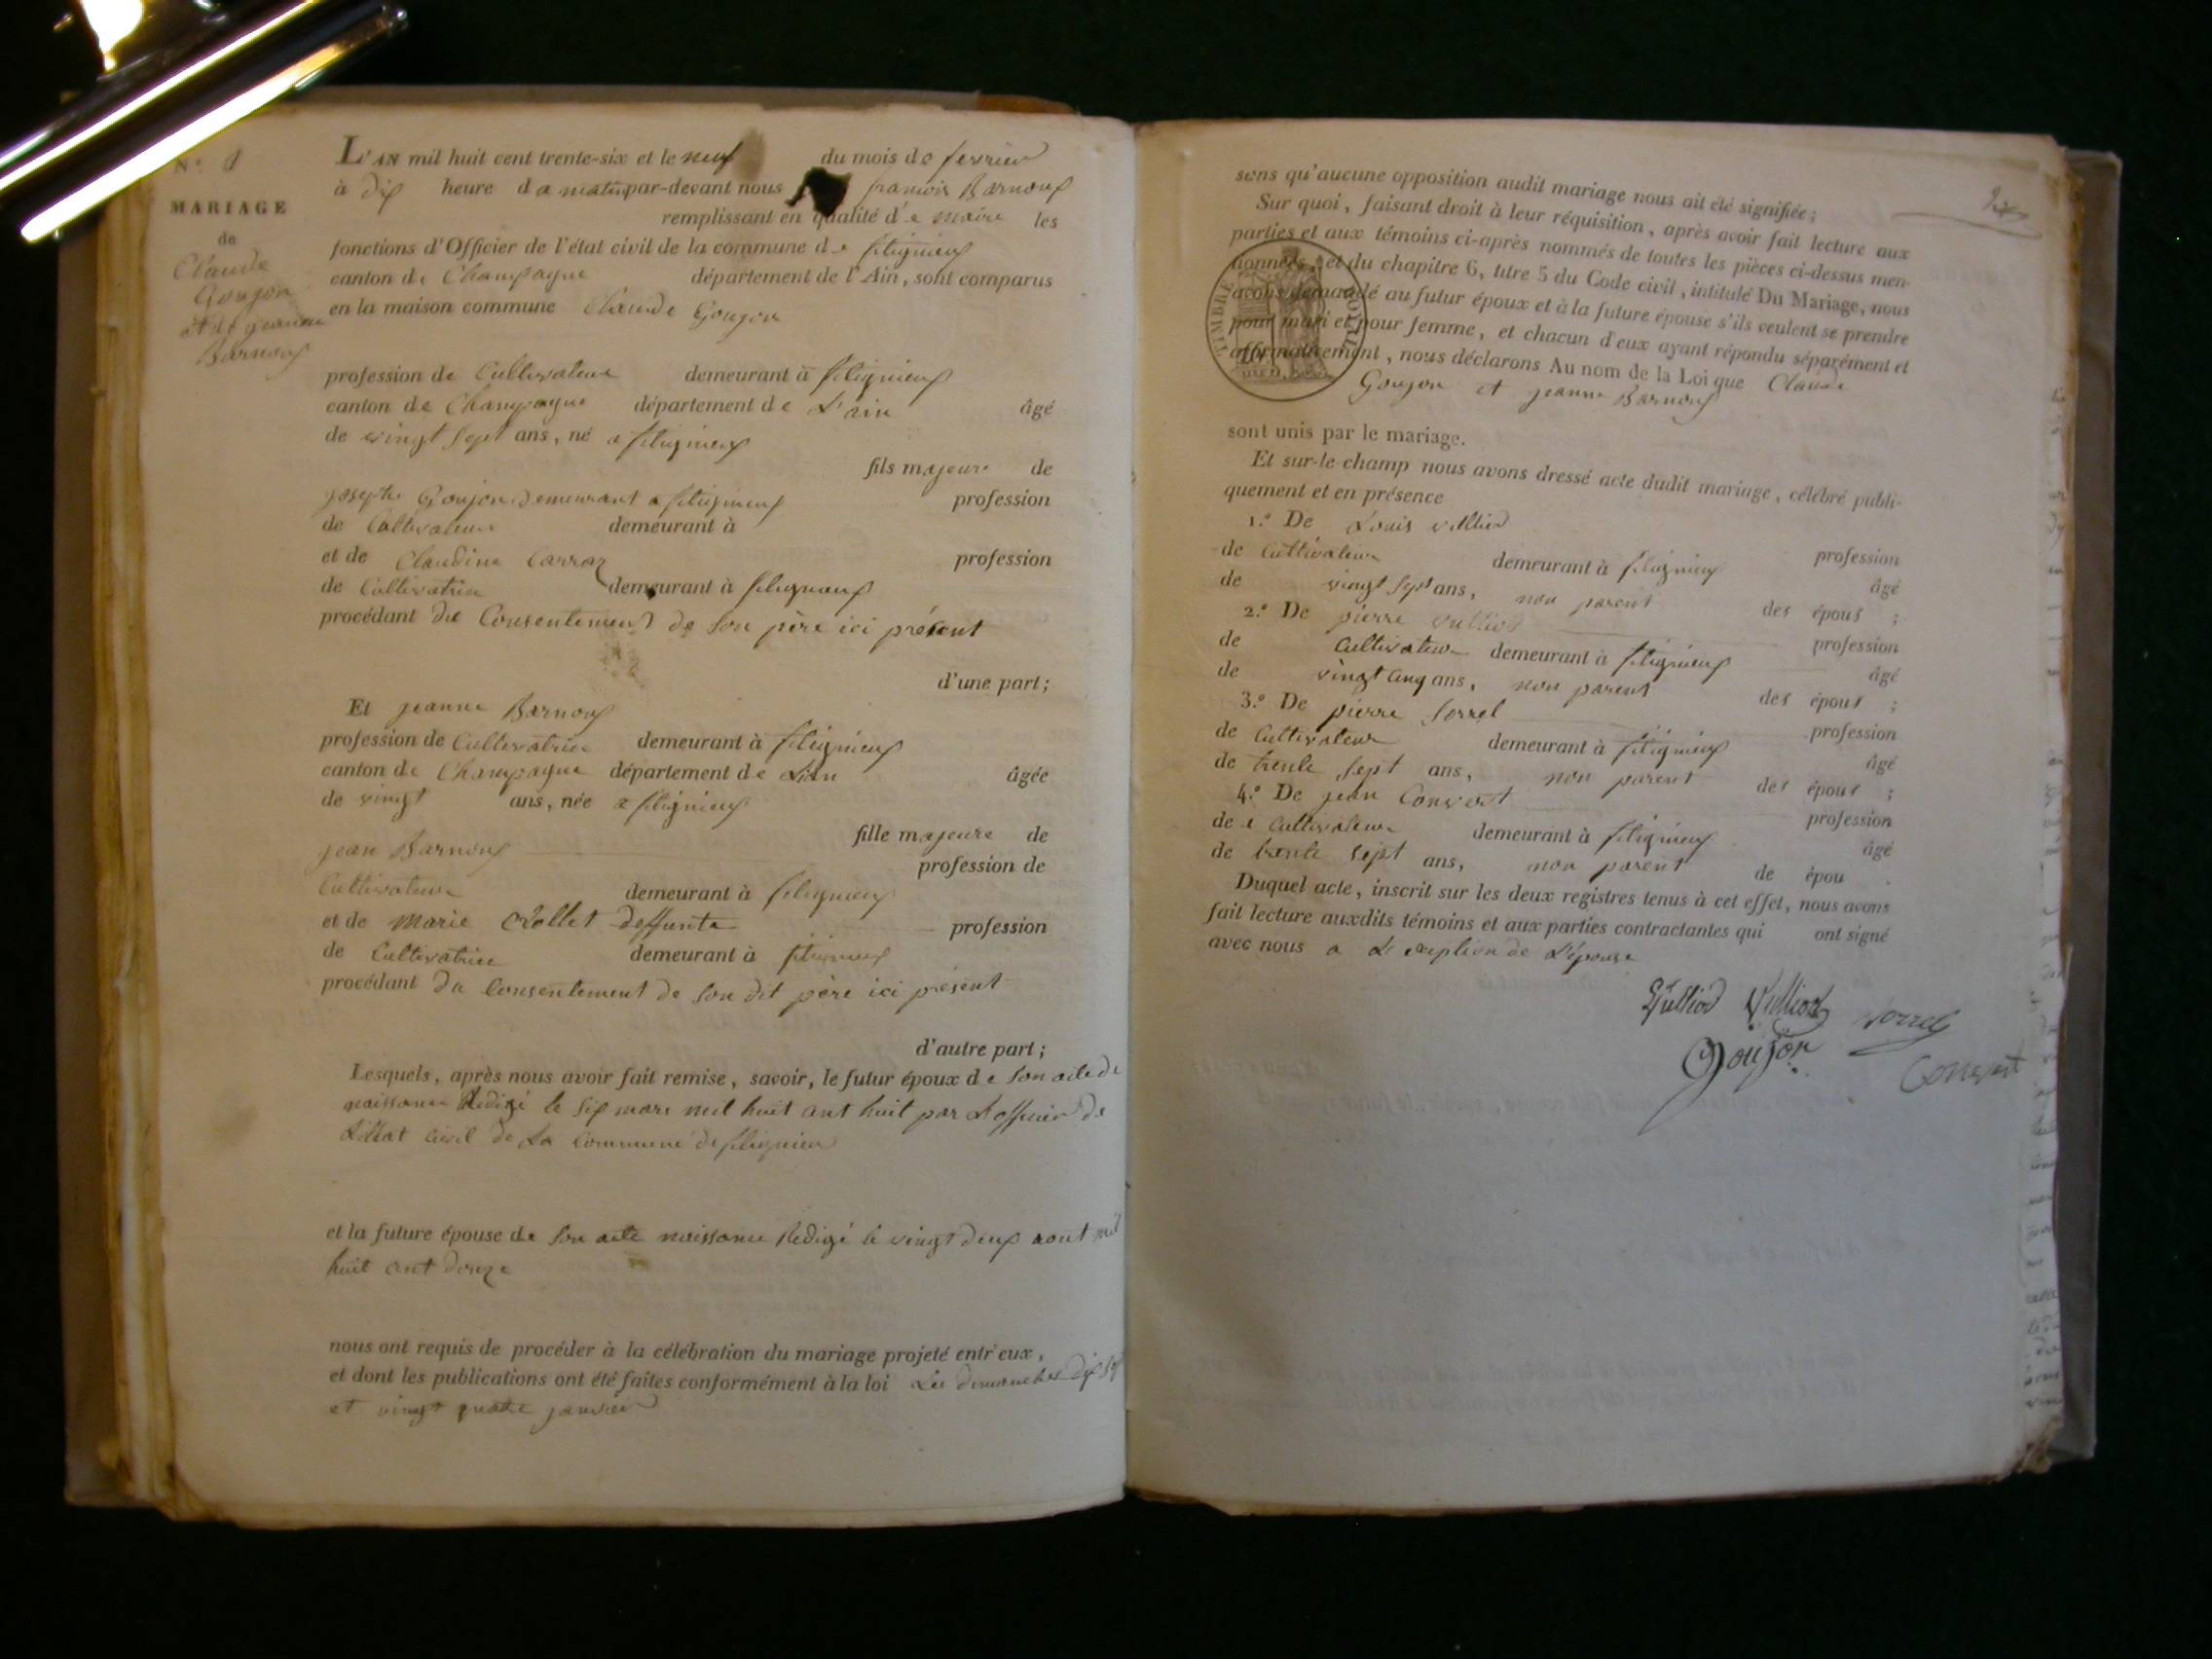 N.º 1
MARIAGE
de
Claude
Goujon
et de jeanne
Barnoux
L'AN mil huit cent trente-six et le neuf du mois de fevrier
à dix heure da matin par-devant nous francois Barnoux
remplissant en qualité de maire les
fonctions d'Officier de l'état civil de la commune de filignieux
canton de Champagne département de l'Ain, sont comparus
en la maison commune Claude Goujon
profession de Cultivateur demeurant à filignieux
canton de Champagne département de L'ain âgé
de vingt sept ans, né a filignieux
fils majeur de
joseph Goujon demeurant a filignieux profession
de Cultivateur demeurant à
et de Claudine Carraz profession
de Cultivatrice demeurant à filignieux
procédant du Consentement de son père ici présent
d'une part;
Et jeanne Barnoux
profession de Cultivatrice demeurant à filignieux
canton de Champagne département de L'ain âgée
de vingt ans, née a filignieux
fille majeure de
jean Barnoux profession de
Cultivateur demeurant à filignieux
et de Marie deffunte profession
de Cultivatrice demeurant à filignieux
procédant du Consentement de son dit père ici présent
d'autre part;
Lesquels, après nous avoir fait remise, savoir, le futur époux de son acte de
naissance Redigé le six mars mil huit cent huit par L'officier de
L'état civil de La commune de filignieu
et la future épouse de son acte naissance Redigé le vingt deux aout mil
huit cent douze
nous ont requis de procéder à la célébration du mariage projeté entr'eux,
et dont les publications ont été faites conformément à la loi Les dimanches dix sept
et vingt quatre janvier
sans qu'aucune opposition audit mariage nous ait été signifiée;
Sur quoi, faisant droit à leur réquisition, après avoir fait lecture aux
parties et aux témoins ci-après nommés de toutes les pièces ci-dessus men-
tionnées, et du chapitre 6, titre 5 du Code civil, intitulé Du Mariage, nous
avons demandé au futur époux et à la future épouse s'ils veulent se prendre
pour mari et pour femme, et chacun d'eux ayant répondu séparément et
affirmativement, nous déclarons Au nom de la Loi que Claude
Goujon et jeanne Barnoux
TIMBRE ROYAL
sont unis par le mariage.
Et sur-le-champ nous avons dressé acte dudit mariage, célébré publi-
quement et en présence
1.º De Louis Vulliod profession
de Cultivateur demeurant à filignieux âgé
de vingt sept ans, non parent des époux ;
2.º De pierre Vulliod profession
de Cultivateur demeurant à filignieux âgé
de vingt cinq ans, non parent des époux ;
3.º De pierre Sorrel profession
de Cultivateur demeurant à filignieux âgé
de trente sept ans, non parent des époux ;
4.º De jean Convert profession
de Cultivateur demeurant à filignieux âgé
de trente sept ans, non parent de épou .
Duquel acte, inscrit sur les deux registres tenus à cet effet, nous avons
fait lecture auxdits témoins et aux parties contractantes qui ont signé
avec nous a L'exception de L'épouse
Vulliod Vulliod Sorrel
Goujon Convert